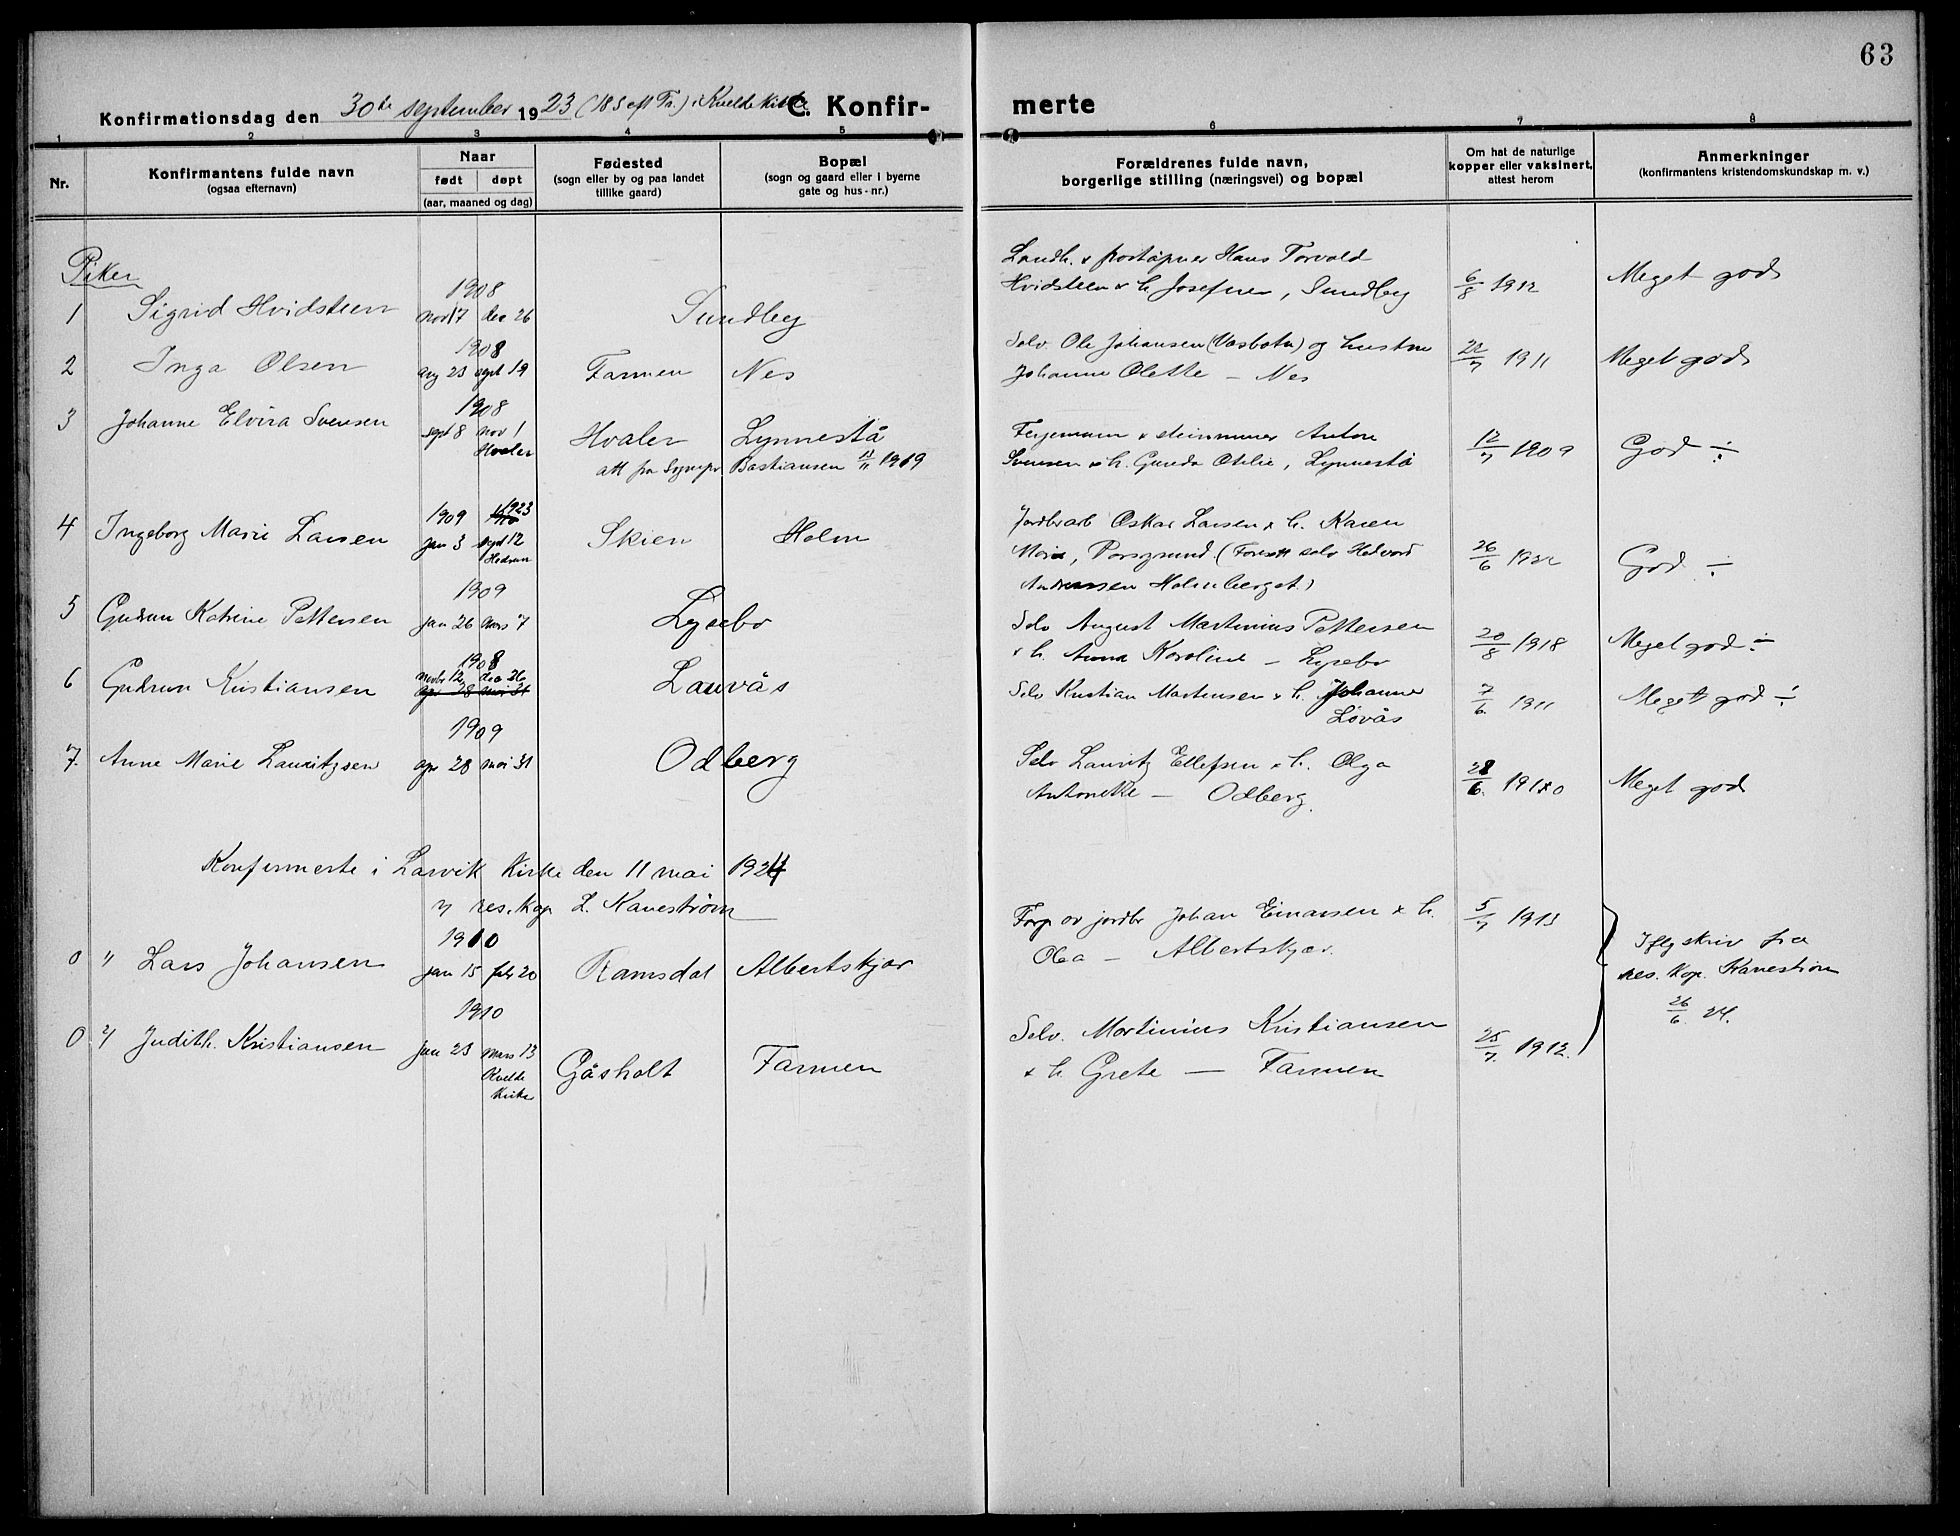 63
Konfirmationsdag den 30te september 1923 (18 S eft Tr.) i Kvelde kirke C. Konfir-merte
1 2 3 4 5 6 7 8
Nr.
Konfirmantens fulde navn
(ogsaa efternavn)
Naar
født døpt
(aar, maaned og dag)
Fødested
(sogn eller by og paa landet
tillike gaard)
Bopæl
(sogn og gaard eller i byerne
gate og hus-nr.)
Forældrenes fulde navn,
borgerlige stilling (næringsvei) og bopæl
Om hat de naturlige
kopper eller vaksinert,
attest herom
Anmerkninger
(konfirmantens kristendomskundskap m. v.)
Piker
1908
1 Sigrid Hvidsteen nov 17 des 26 Sundby
Landh. & poståpner Hans Torvald
Hvidsteen & h. Josefine, Sundby 6/8 1912 Meget god
1908
2 Inga Olsen aug 23 sept 19 Farmen Nes
Selv. Ole Johansen (Vasbotn) og hustru
Johanne Olette — Nes 22/7 1911 Meget god
1908
3 Johanne Elvira Svensen sept 8 nov 1 Hvaler Lynnestå
Hvaler
att fra Sognepr Bastiansen 13/11 1919
Fergemann & steinminer Anton
Svensen & h. Gunda Otilie, Lynnestå 12/7 1909 God ÷
1909 1923
4 Ingeborg Marie Larsen jan 3 sept 12 Skien Holm
Hedrum
Jordbrarb Oskar Larsen & h. Karen
Marie, Porsgrund. (Foresatt selv Hedvard
Andreassen Holmberget.) 26/6 1922 God ÷
1909
5 Gudrun Katrine Pettersen jan 26 mars 7 Lysebo
Selv August Martinius Pettersen
& h. Anna Karoline — Lysebo 20/8 1918 Meget god ÷
1908
6 Gudrun Kristiansen novbr 12 des 26 Lauvås
apr 28 mai 31
Selv Kristian Martinsen & h. Johanne
Løvås 7/6. 1911 Meget god ÷
1909
7. Anne Marie Lauritzsen apr 28 mai 31 Odberg
Selv Lauritz Ellefsen & h. Olga
Antonette — Odberg. 28/6. 1910 Meget god
Konfirmerte i Larvik Kirke den 11 mai 1924
res. kap L. Kanestrøm
1910
0 " Lars Johansen jan 15 febr 20 Ramsdal Albertskjær
Forp av jordbr Johan Einarsen & h.
Olea — Albertskjær. 5/7 1913
Iflg skriv fra
res. kap. Kanestrøm
26/6. 24.
1910
0 " Judith Kristiansen jan 23 mars 13 Gåsholt Farmen
Kvelde
Kirke
Selv. Martinius Kristiansen
& h Grete — Farmen 25/7. 1912.